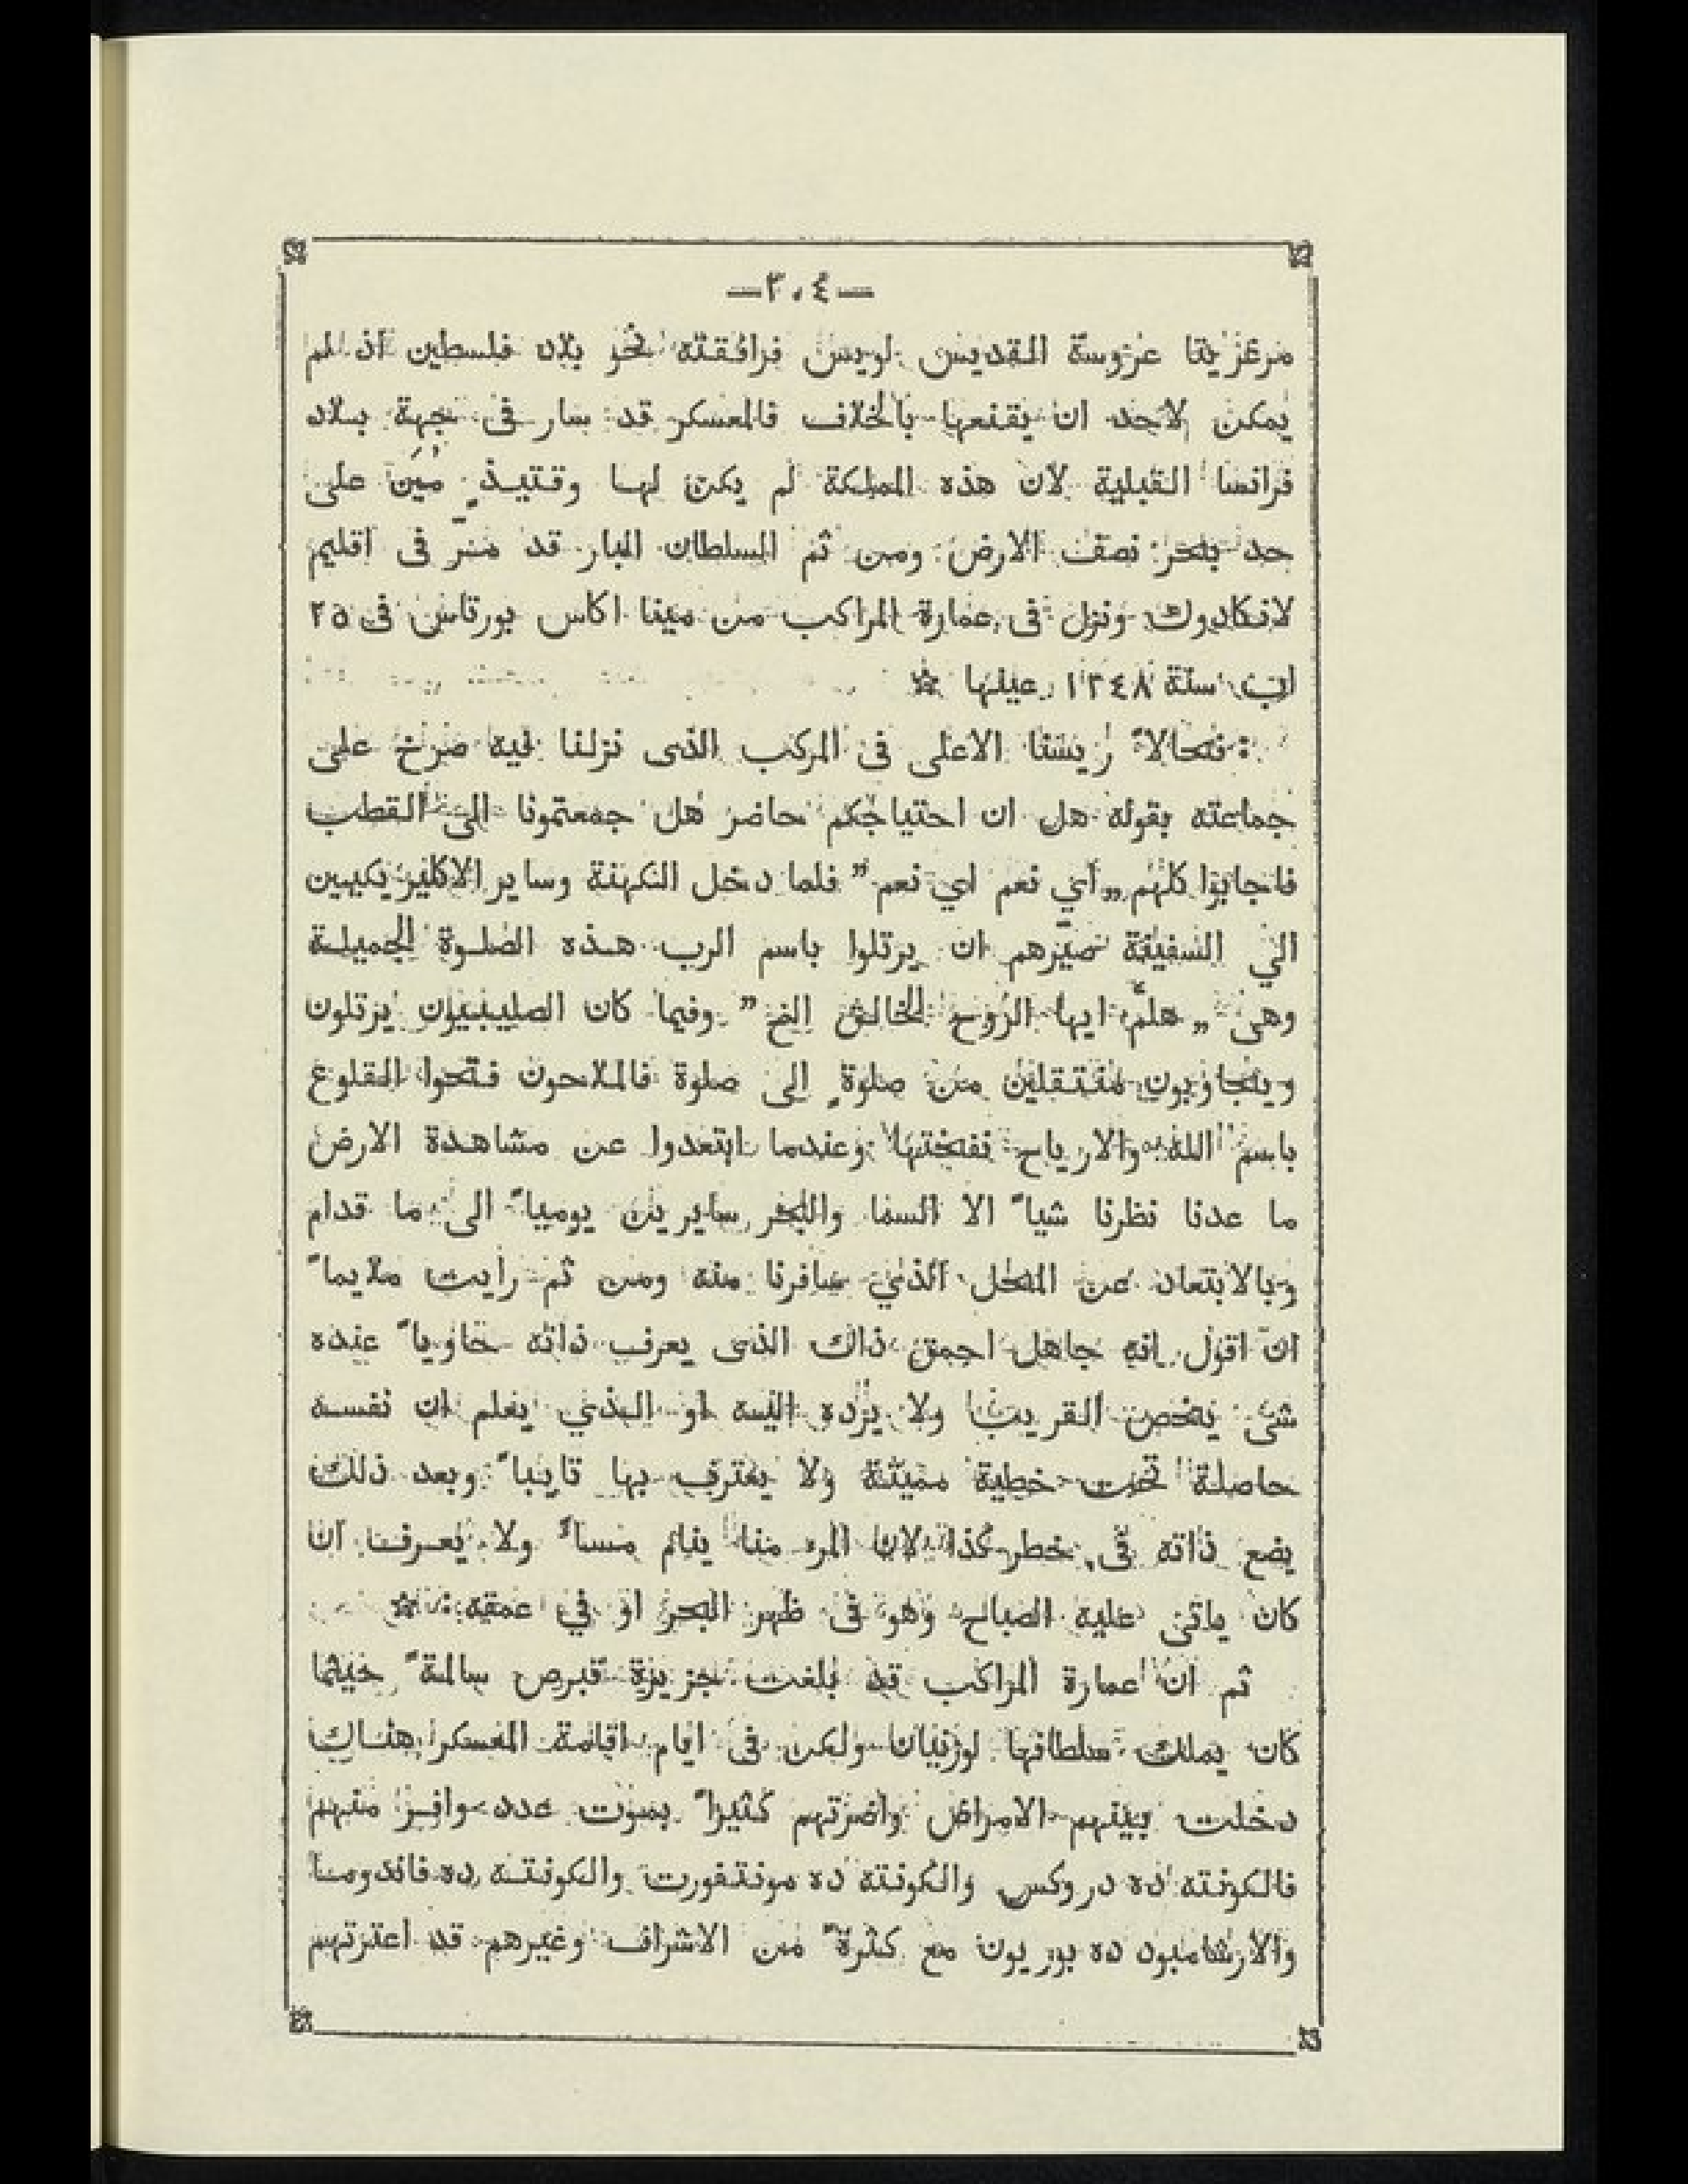 —٣٠٤—
مرغريتا عروسة القديس لويس فرافقته نحو بلاد فلسطين اذ لم
يمكن لاحد ان يقنعها بالخلاف فالعسكر قد سار فى جهة بلاد
فرانسا القبلية لان هذه المملكة لم يكن لها وقتيذٍ مين على
حد بحر نصف الارض ومن ثم السلطان البار قد مرّ فى اقليم
لانكادوك ونزل فى عمارة المراكب من مينا اكاس بورتاس فى ٢٥
اب سنة ١٢٤٨ عينها ☆
فحالاً ريسنا الاعلى فى المركب الذى نزلنا فيه صرخ على
جماعته بقوله هل ان احتياجكم حاضر هل جمعتمونا الى القطب
فاجابوا كلهم „اي نعم اي نعم” فلما دخل الكهنة وساير الاكليريكيين
الي السفينة صيّرهم ان يرتلوا باسم الرب هذه الصلوة الجميلة
وهى „ هلمّ ايها الروح الخالق الخ” وفيما كان الصليبيون يرتلون
ويتجاوبون منتقلين من صلوةٍ الى صلوة فالملاحون فتحوا القلوع
باسم الله والارياح نفختها وعندما ابتعدوا عن مشاهدة الارض
ما عدنا نظرنا شياً الا السما والبحر سايرين يومياً الى ما قدام
وبالابتعاد عن المحل الذي سافرنا منه ومن ثم رأيت ملايماً
ان اقول انه جاهل احمق ذاك الذى يعرف ذاته حاوياً عنده
شى يخص القريب ولا يرده اليه او الذي يعلم ان نفسه
حاصلة تحت خطية مميتة ولا يعترف بها تايباً وبعد ذلك
يضع ذاته فى خطر كذا لان المرء منا ينام مساً ولا يعرف ان
كان ياتى عليه الصباح وهو فى ظهر البحر او في عمقه ☆
ثم ان عمارة المراكب قد بلغت جزيرة قبرص سالمةً حيثما
كان يملك سلطانها لوزنيان ولكن فى ايام اقامة العسكر هناك
دخلت بينهم الامراض واضرتهم كثيراً بموت عدد وافر منهم
فالكونته ده دروكس والكونته ده مونتفورت والكونته ده فاندوما
والارشامبون ده بوربون مع كثرةٍ من الاشراف وغيرهم قد اعترتهم